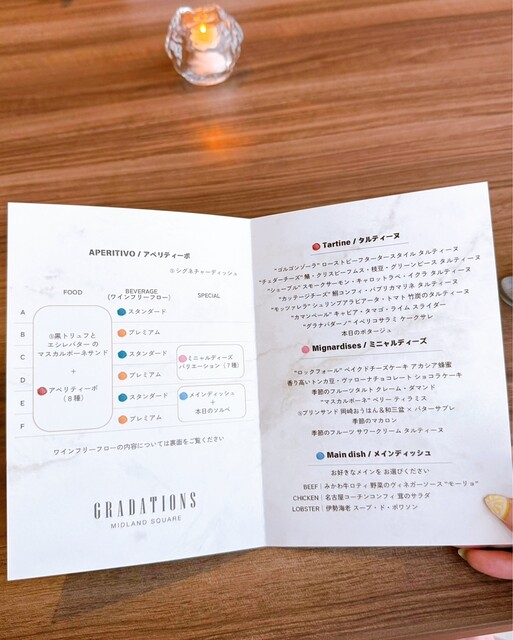 APERITIVO / アペリティーボ
Ⓢシグネチャーディッシュ
FOOD
BEVERAGE
(ワインフリーフロー)
SPECIAL
A
B
C
D
E
F
Ⓢ黒トリュフと
エシレバター の
マスカルポーネサンド
+
アペリティーボ
(８種)
スタンダード
プレミアム
スタンダード
プレミアム
スタンダード
プレミアム
ミニャルディーズ
バリエーション (７種)
メインディッシュ
+
本日のソルベ
ワインフリーフローの内容については裏面をご覧ください
GRADATIONS
MIDLAND SQUARE
Tartine / タルティーヌ
"ゴルゴンゾーラ" ローストビーフタータースタイル タルティーヌ
"チェダーチーズ" 鯛・クリスピーフムス・枝豆・グリーンピース タルティーヌ
"シューブル" スモークサーモン・キャロットラペ・イクラ タルティーヌ
"カッテージチーズ" 鯛コンフィ・パプリカマリネ タルティーヌ
"モッツァレラ" シュリンプアラビアータ・トマト 竹炭のタルティーヌ
"カマンベール" キャビア・タマゴ・ライム スライダー
"グラナパダーノ" イベリコサラミ ケークサレ
本日のポタージュ
Mignardises / ミニャルディーズ
"ロックフォール" ベイクドチーズケーキ アカシア蜂蜜
香り高いトンカ豆・ヴァローナチョコレート ショコラケーキ
季節のフルーツタルト クレーム・ダマンド
"マスカルポーネ" ベリー ティラミス
Ⓢプリンサンド 岡崎おうはん&和三盆 × バターサブレ
季節のマカロン
季節のフルーツ サワークリーム タルティーヌ
Main dish / メインディッシュ
お好きなメインを お選びください
BEEF | みかわ牛ロティ 野菜のヴィネガーソース "モーリョ"
CHICKEN | 名古屋コーチンコンフィ 茸のサラダ
LOBSTER | 伊勢海老 スープ・ド・ポワソン